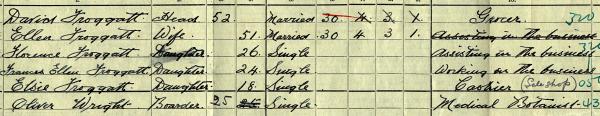 David Froggatt Head 52 Married 30 4 3 1 Grocer 320
Ellen Froggatt Wife 51 Married 30 4 3 1 Assisting in the business
Florence Froggatt Daughter 26 Single Assisting in the business 320
Frances Ellen Froggatt Daughter 24 Single Working in the business
Elsie Froggatt Daughter 18 Single Cashier
Oliver Wright Boarder 25 Single Medical Botanist 43